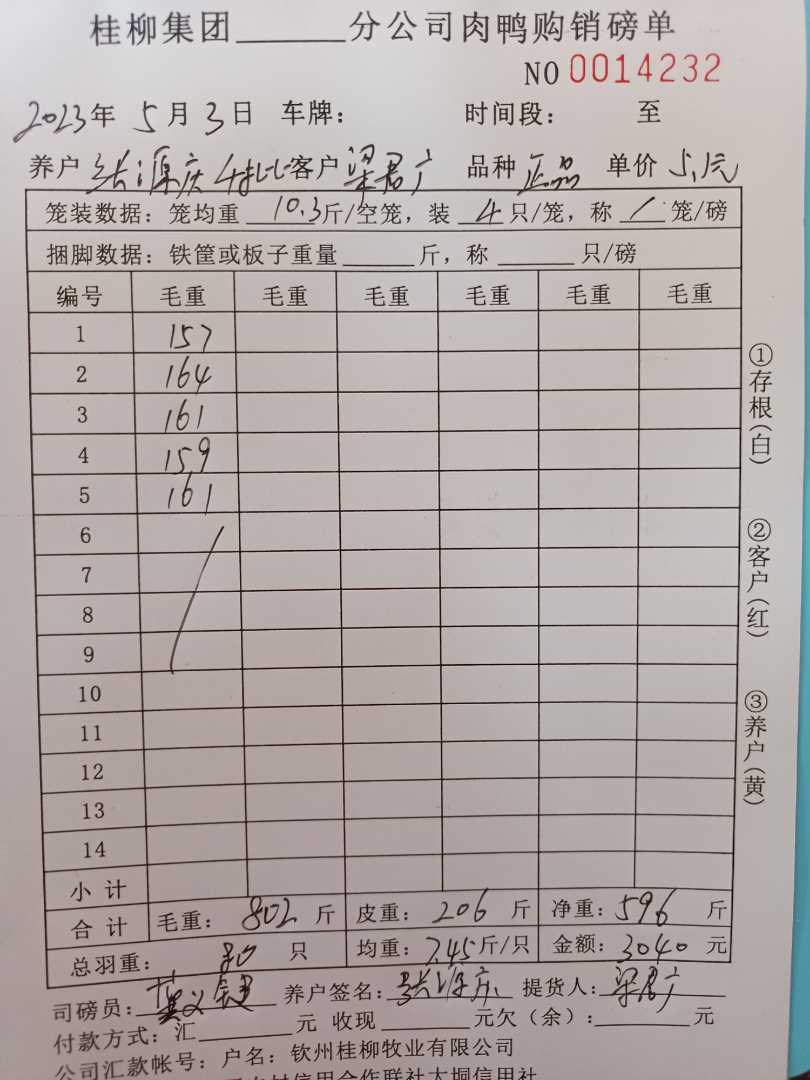 桂柳集团______分公司肉鸭购销磅单
NO 0014232
2023年 5月 3日 车牌: 时间段: 至
养户 张源庆 客户 梁居广 品种 正品 单价 5.1元
笼装数据: 笼均重 10.3斤/空笼, 装 4只/笼, 称 / 笼/磅
捆脚数据: 铁筐或板子重量______斤, 称______只/磅
编号 毛重 毛重 毛重 毛重 毛重 毛重
1 157
2 164
3 161
4 159
5 161
6
7
8
9
10
11
12
13
14
小计
合计 毛重: 802斤 皮重: 206斤 净重: 596斤
总羽重: 80只 均重: 7.45斤/只 金额: 3040元
司磅员: 养户签名: 张源庆 提货人: 梁居广
付款方式: 汇______元 收现______元欠(余):______元
公司汇款帐号: 户名: 钦州桂柳牧业有限公司
信用合作联社大垌信用社
①存根(白)
②客户(红)
③养户(黄)